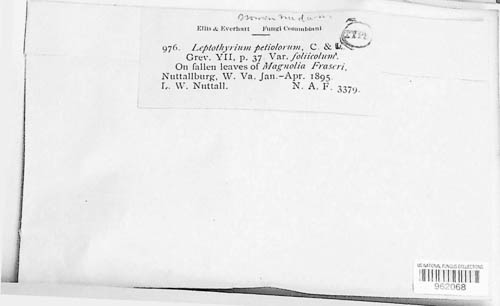 Ellis & Everhart Fungi Columbiani
976. Leptothyrium petiolorum, C. & E.
Grev. VII, p. 37 Var. foliicolum.
On fallen leaves of Magnolia Fraseri,
Nuttallburg, W. Va. Jan.-Apr. 1895.
L. W. Nuttall. N. A. F. 3379.
US NATIONAL FUNGUS COLLECTIONS
962068